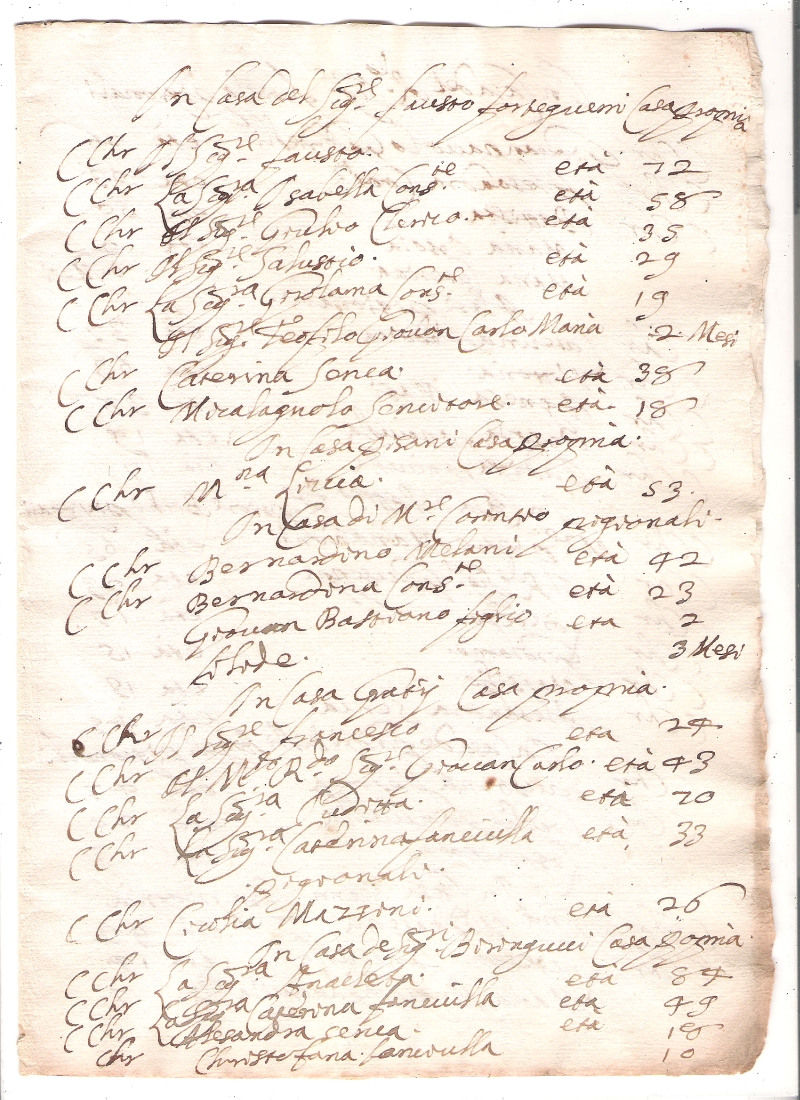 In Casa del Sig.re Fausto Forteguerri Casa propria
C Chr Il Sig.re Fausto. età 72
C Chr La Sig.ra Isabella Cons.te età 58
C Chr Il Sig.re Giulio Clerico. età 35
C Chr Il Sig.re Salustio. età 29
C Chr La Sig.ra Girolama Cons.te età 19
Il Sig.re Teofilo Giovan Carlo Maria 2 Mesi
C Chr Caterina Serva. età 38
C Chr Micalagnolo Servitore. età 18
In Casa Pisani Casa propria.
C Chr M.na Livia. età 53.
In Casa di M.re pigionali.
C Chr Bernardino Melani età 42
C Chr Bernardina Cons.te età 23
Giovan Bastiano figlio eta 2
3 Mesi
In Casa Casa propria.
C Chr Il Sig.re Francesco eta 24
C Chr Il M.to R.do Sig.re Giovan Carlo. età 43
C Chr La Sig.ra età 70
C Chr La Sig.ra Caterina fanciulla età 33
pigionali.
C Chr Cicilia Mazzini. età 26
In Casa de Sig.ri Biringucci Casa propria.
C Chr La Sig.ra Anacleta. età 84
C Chr La Sig.ra Caterina fanciulla età 49
C Chr Alesandra serva. età 18
Chr Christofana fanciulla 10